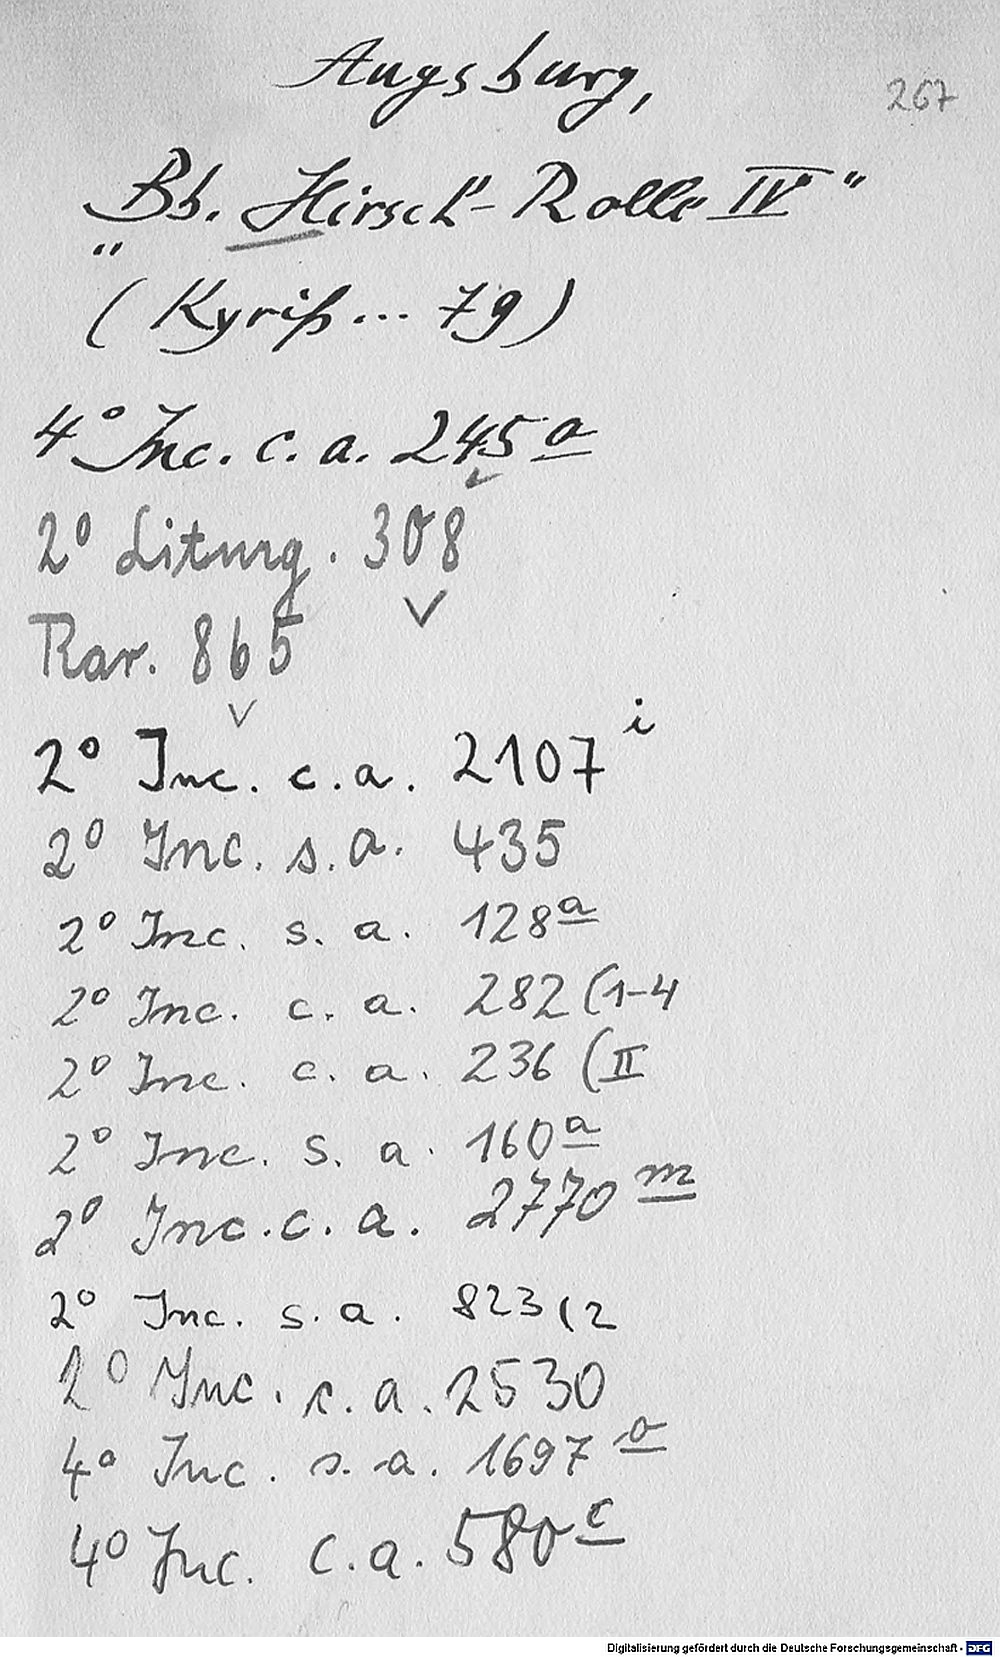 Augsburg,
267
Bb. "Hirsch"-Rolle IV"
(Kyriß... 79)
4° Inc. c. a. 245 a
2° Liturg. 308
Rar. 865
2° Inc. c. a. 2107 i
2° Inc. s. a. 435
2° Inc. s. a. 128 a
2° Inc. c. a. 282 (1-4
2° Inc. c. a. 236 (II
2° Inc. s. a. 160 a
2° Inc. c. a. 2770 m
2° Inc. s. a. 823 (2
2° Inc. c. a. 2530
4° Inc. s. a. 1697 a
4° Inc. c. a. 580 c
Digitalisierung gefördert durch die Deutsche Forschungsgemeinschaft - DFG